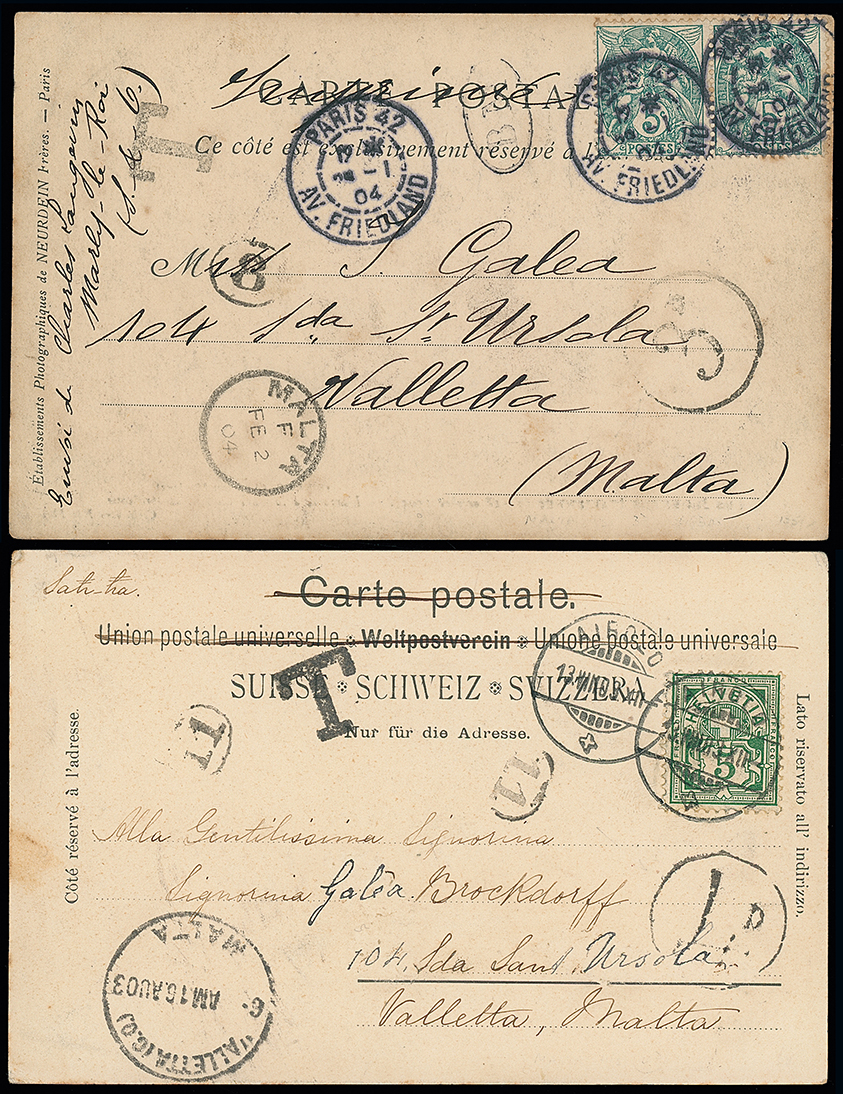 CARTE POSTALE
Ce côté est exclusivement réservé à l'
Imprimé
PARIS 42
AV. FRIEDLAND
04
PARIS 42
04
AV. FRIEDLAND
PARIS 42
04
AV. FRIEDLAND
5c
POSTES
POSTES
T
8
Etablissements Photographiques de NEURDEIN Frères. — Paris
Envoi de Charles
Marly-le-Roi
(S. & O.)
S. Galea
104 Sda St Ursola
Valletta
(Malta)
MALTA
F
FE 2
04
Carte postale.
Union postale universelle Weltpostverein Unione postale universale
SUISSE SCHWEIZ SVIZZERA
Nur für die Adresse.
T
11
11
4
FRANCO
HELVETIA
5
Côté réservé à l'adresse.
Lato riservato all' indirizzo.
Alla Gentilissima Signorina
Signorina Galèa Brockdorff
104, Sda Sant Ursola
Valletta, Malta
1 P
MALTA
AM 16 AU 03
VALLETTA (G.O)